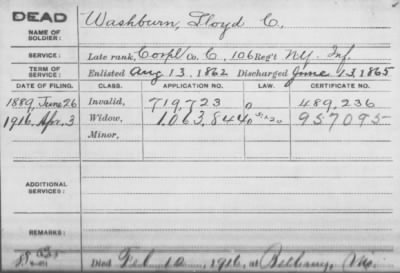 DEAD
NAME OF SOLDIER: Washburn, Lloyd C.
SERVICE: Late rank, Corpl Co. C, 106 Reg't N.Y. Inf.
TERM OF SERVICE: Enlisted Aug 13, 1862 Discharged June 13, 1865
DATE OF FILING. CLASS. APPLICATION NO. LAW. CERTIFICATE NO.
1889, June 26 Invalid, 719,723 489,236
1916, Apr. 3 Widow, 1,063,844 957095
Minor,
ADDITIONAL SERVICES:
REMARKS:
Died Feb. 10, 1916, at Bethany, Mo.